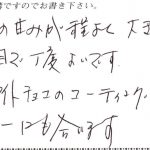 ですのでお書き下さい。
の甘みが程よく大き
目で丁度よいです。
イトチョコのコーティング
ーにも合います